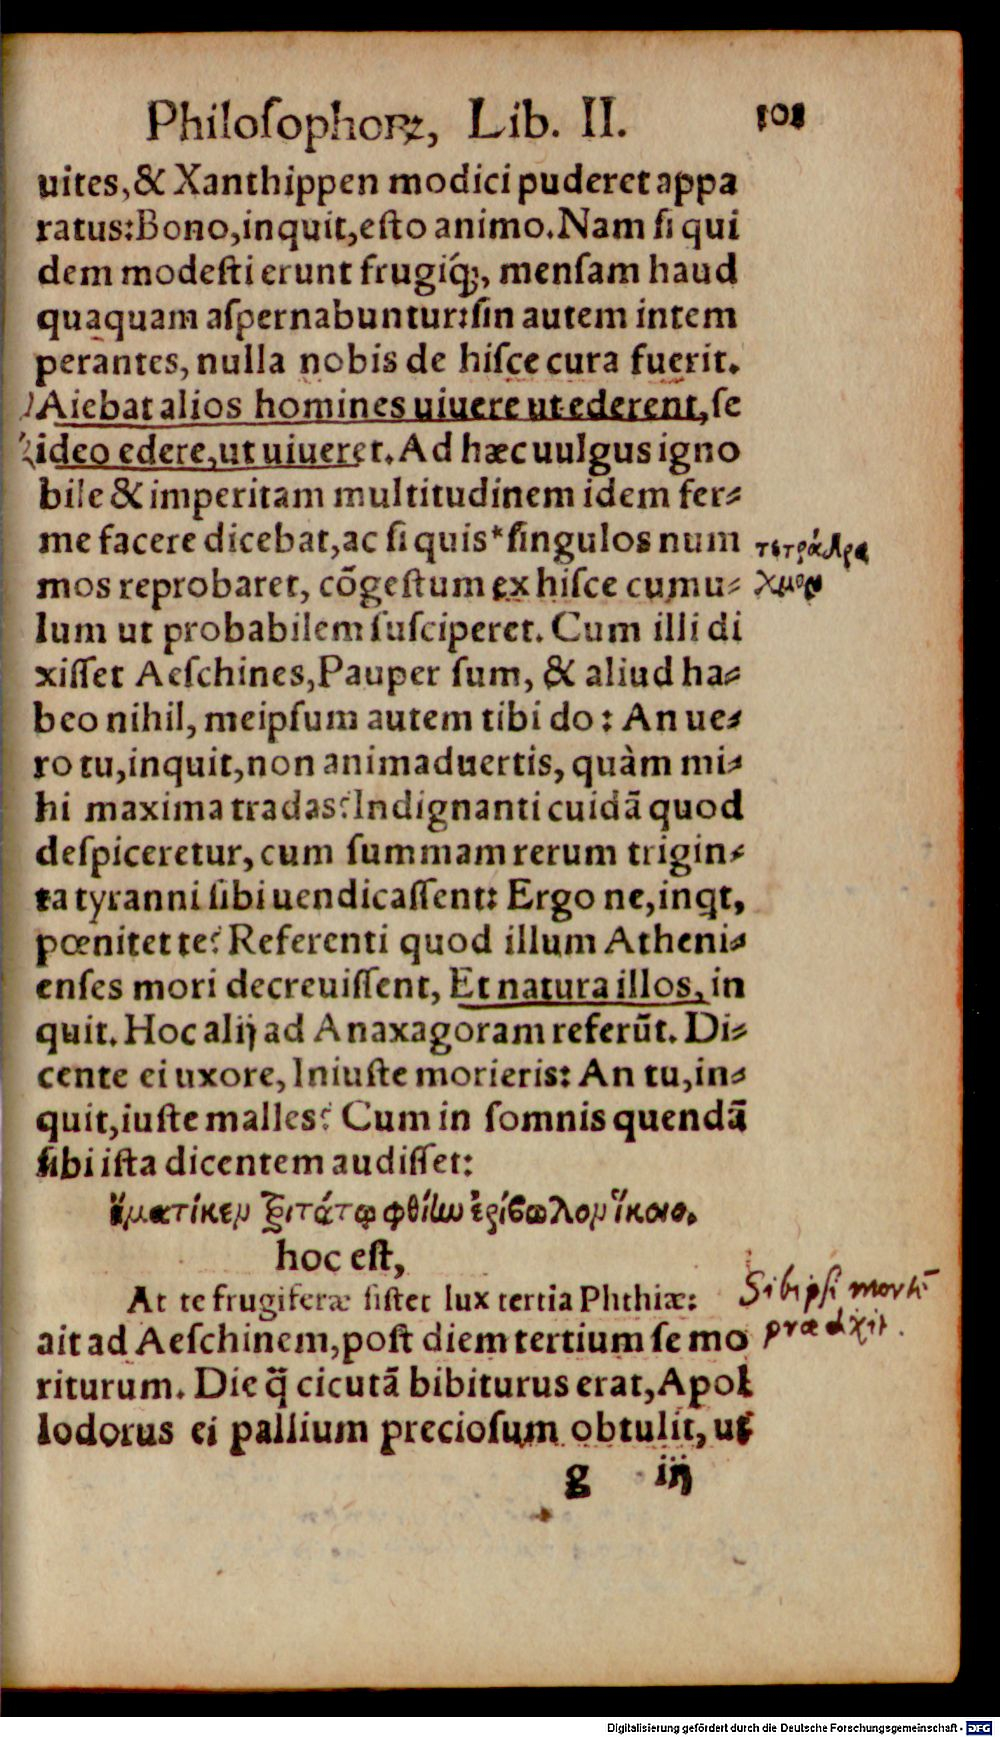 Philoſophoꝝ, Lib. II. 101
uites,& Xanthippen modici puderet appa
ratus:Bono,inquit,eſto animo.Nam ſi qui
dem modeſti erunt frugiq́ꝫ, menſam haud
quaquam aſpernabuntur:ſin autem intem
perantes, nulla nobis de hiſce cura fuerit.
Aiebat alios homines uiuere ut ederent,ſe
ideo edere,ut uiueret.Ad hæc uulgus igno
bile & imperitam multitudinem idem fer⸗
me facere dicebat,ac ſi quis*ſingulos num
τετράδρα
mos reprobaret, cōgeſtum ex hiſce cumu⸗
χμον
lum ut probabilem ſuſciperet. Cum illi di
xiſſet Aeſchines,Pauper ſum, & aliud ha⸗
beo nihil, meipſum autem tibi do: An ue⸗
ro tu,inquit,non animaduertis, quàm mi⸗
hi maxima tradas? Indignanti cuidā quod
deſpiceretur, cum ſummam rerum trigin⸗
ta tyranni ſibi uendicaſſent: Ergo ne,inqt,
pœnitet te? Referenti quod illum Atheni⸗
enſes mori decreuiſſent, Et natura illos, in
quit. Hoc alij ad Anaxagoram referūt. Di⸗
cente ei uxore, Iniuſte morieris: An tu,in⸗
quit,iuſte malles? Cum in ſomnis quendā
ſibi iſta dicentem audiſſet:
ἤματίκεν τριτάτῳ φθίίω ἐρίβωλον ἵκοιο.
hoc eſt,
At te frugiferæ ſiſtet lux tertia Phthiæ:
Sibipſi mortē
ait ad Aeſchinem,poſt diem tertium ſe mo
prædixit.
riturum. Die q̄ cicutā bibiturus erat,Apol
lodorus ei pallium precioſum obtulit, ut
g iij
Digitalisierung gefördert durch die Deutsche Forschungsgemeinschaft - DFG